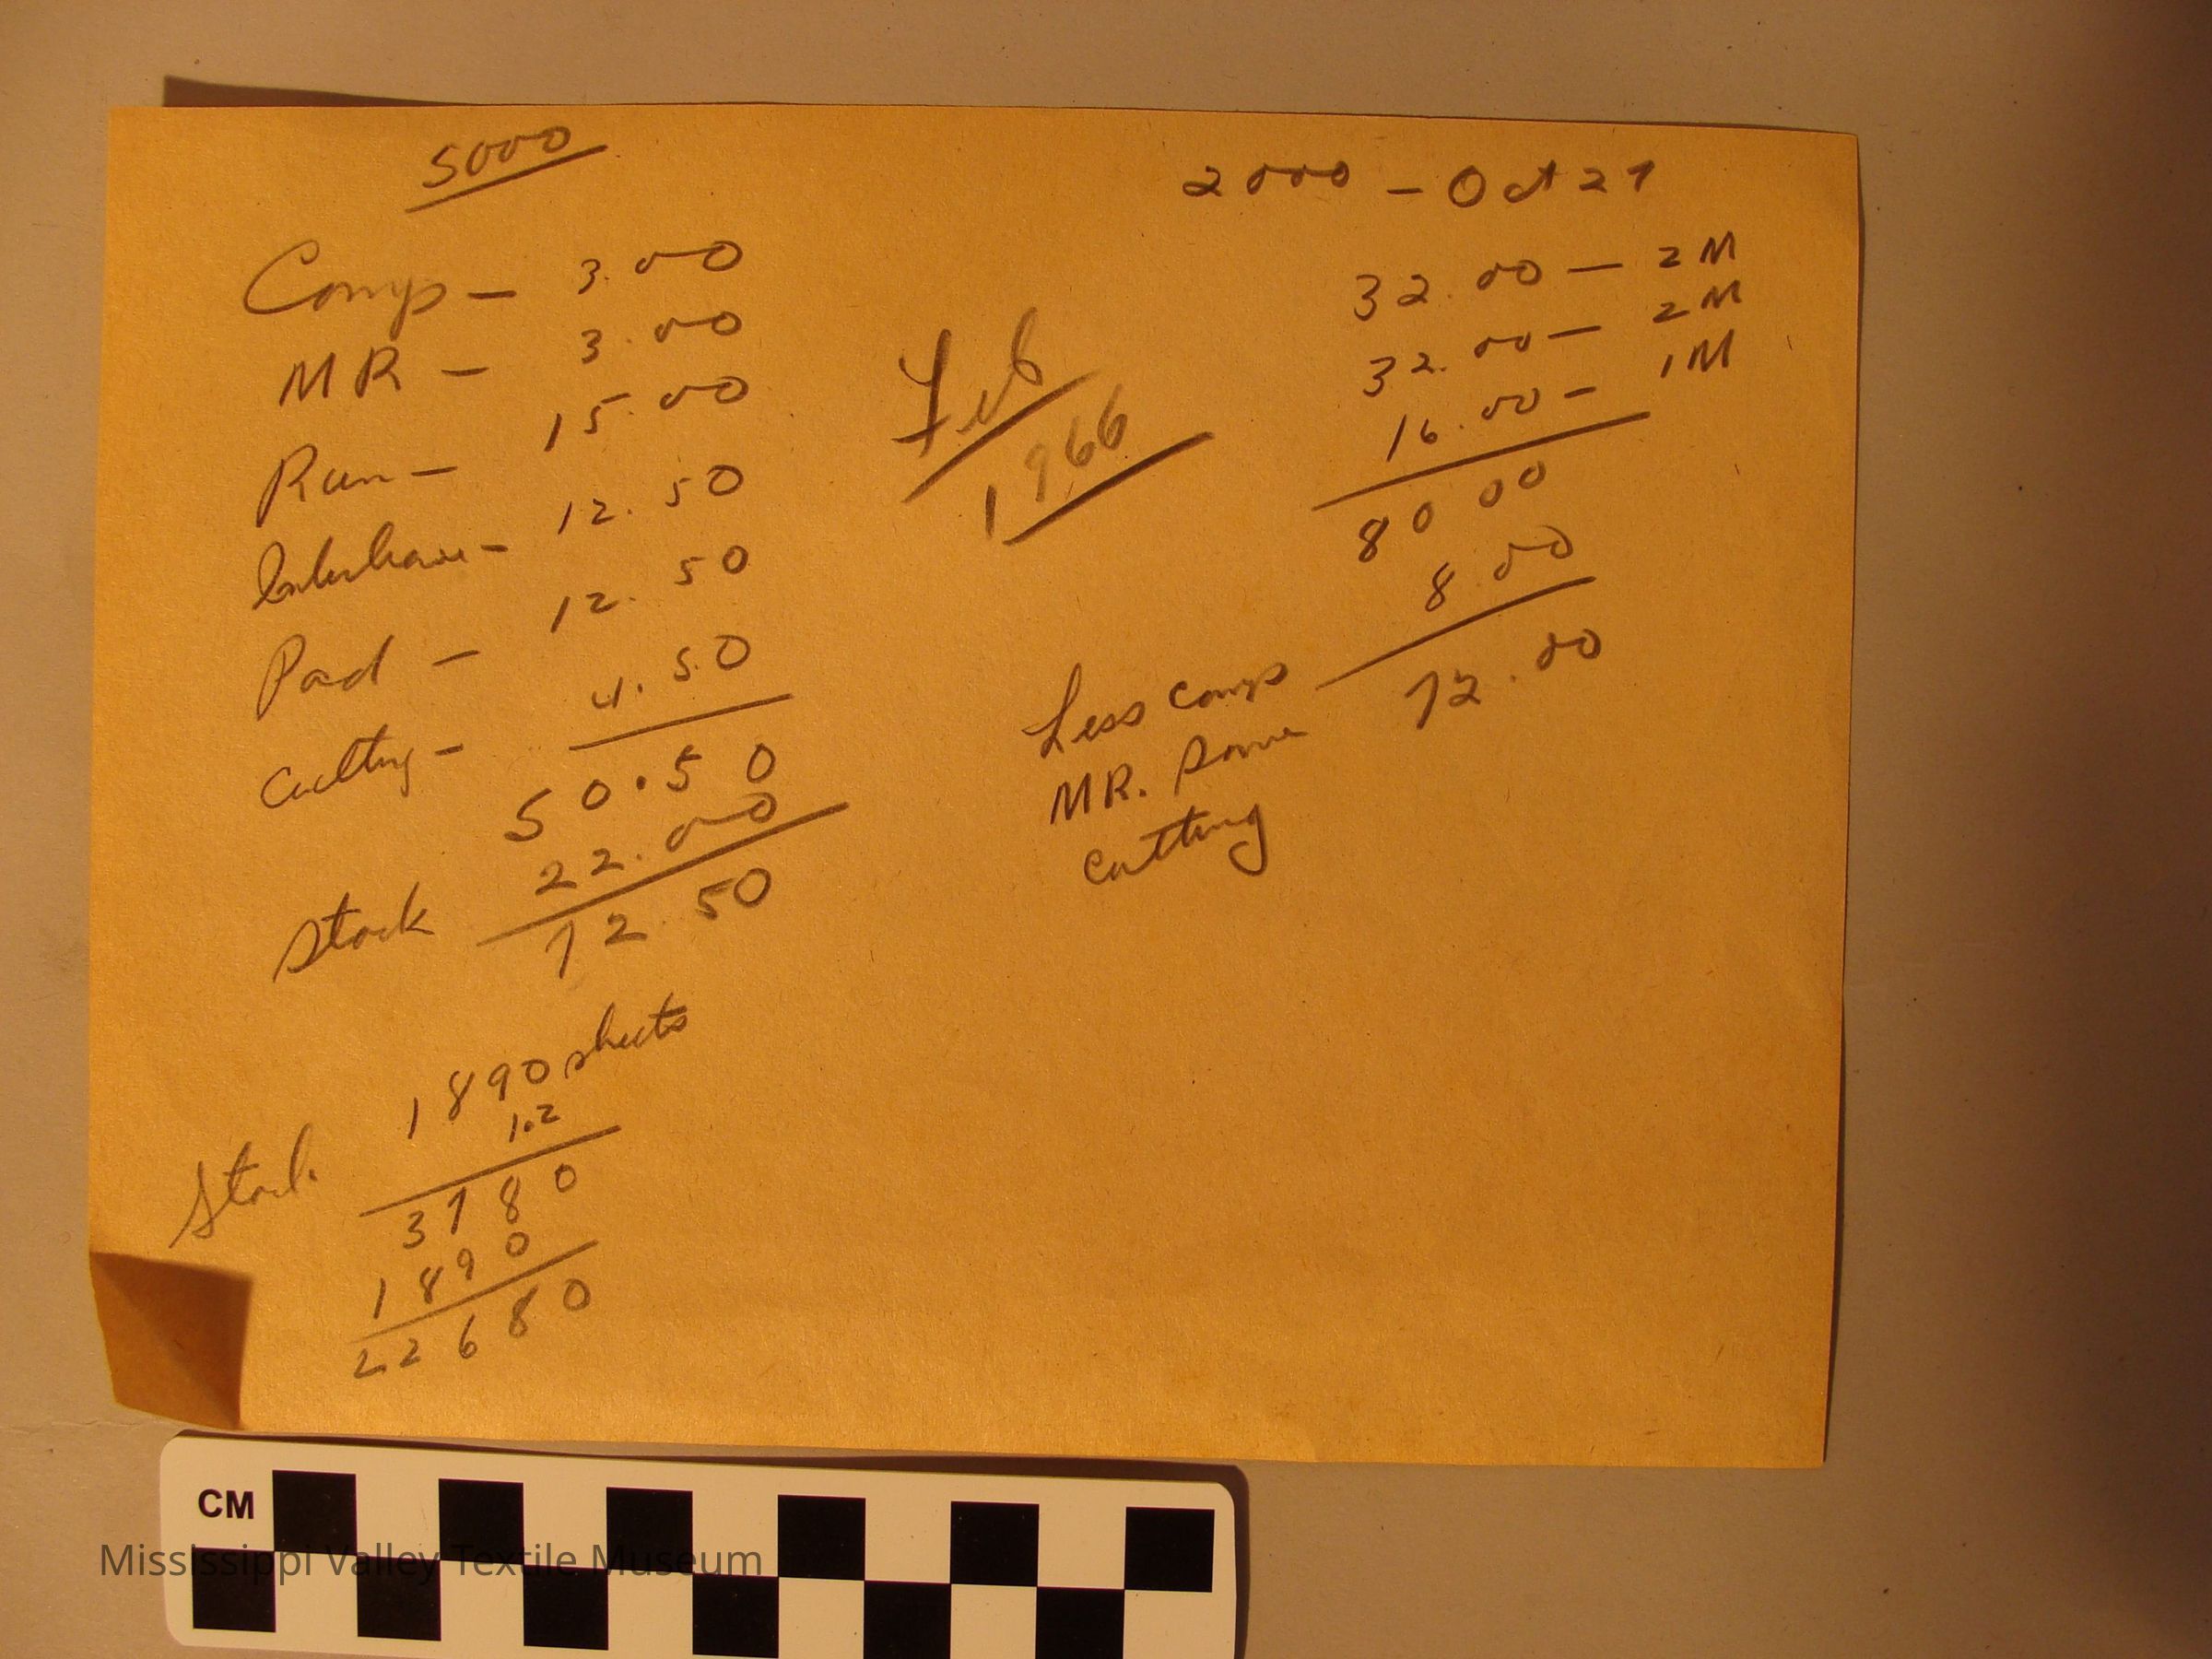 5000
Comp – 3.00
MR – 3.00
Run – 15.00
Interleave – 12.50
Pad – 12.50
Cutting – 4.50
50.50
Stock 22.00
72.50
1890 sheets
Stock 1.2
3780
1890
22680
Feb
1966
2000 – Oct 27
32.00 – 2M
32.00 – 2M
16.00 – 1M
80 00
8.00
72.00
Less comp
MR.
Cutting
CM
Mississippi Valley Textile Museum